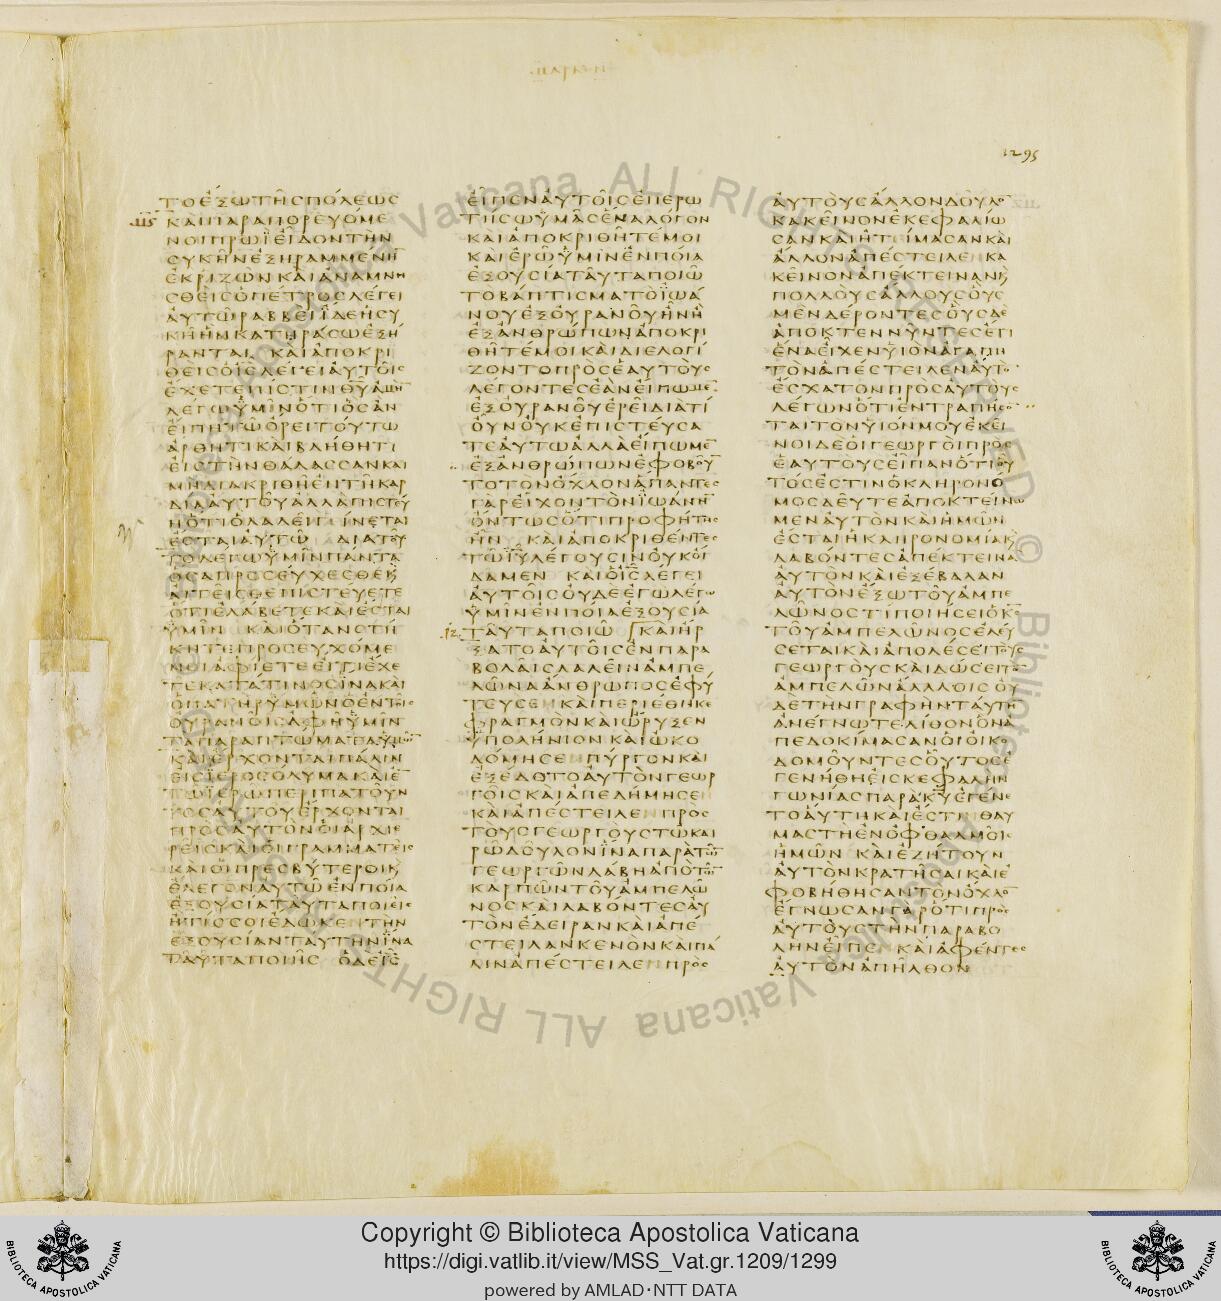 1295
ΤΟΕΞΩΤΗΣΠΟΛΕΩΣ
ΚΑΙΠΑΡΑΠΟΡΕΥΟΜΕ
ΝΟΙΠΡΩΙΕΙΔΟΝΤΗΝ
ΣΥΚΗΝΕΞΗΡΑΜΜΕΝΗ
ΕΚΡΙΖΩΝΚΑΙΑΝΑΜΝΗ
ΣΘΕΙΣΟΠΕΤΡΟΣΛΕΓΕΙ
ΑΥΤΩΡΑΒΒΕΙΪΔΕΗΣΥ
ΚΗΗΝΚΑΤΗΡΑΣΩΕΞΗ
ΡΑΝΤΑΙ ΚΑΙΑΠΟΚΡΙ
ΘΕΙΣΟΙΣΛΕΓΕΙΑΥΤΟΙΣ
ΕΧΕΤΕΠΙΣΤΙΝΘΥΑΜΗ
ΛΕΓΩΫΜΙΝΟΤΙΟΣΑΝ
ΕΙΠΗΤΩΟΡΕΙΤΟΥΤΩ
ΑΡΘΗΤΙΚΑΙΒΛΗΘΗΤΙ
ΕΙΣΤΗΝΘΑΛΑΣΣΑΝΚΑΙ
ΜΗΔΙΑΚΡΙΘΗΕΝΤΗΚΑΡ
ΔΙΑΑΥΤΟΥΑΛΛΑΠΙΣΤΕΥ
ΗΟΤΙΟΛΑΛΕΙΓΕΙΝΕΤΑΙ
ΕΣΤΑΙΑΥΤΩ ΔΙΑΤΟΥ
ΤΟΛΕΓΩΫΜΙΝΠΑΝΤΑ
ΟΣΑΠΡΟΣΕΥΧΕΣΘΕΚ
ΑΙΤΕΙΣΘΕΠΙΣΤΕΥΕΤΕ
ΟΤΙΕΛΑΒΕΤΕΚΑΙΕΣΤΑΙ
ΫΜΙΝ ΚΑΙΟΤΑΝΣΤΗ
ΚΗΤΕΠΡΟΣΕΥΧΟΜΕ
ΝΟΙΑΦΙΕΤΕΕΙΤΙΕΧΕ
ΤΕΚΑΤΑΤΙΝΟΣΙΝΑΚΑΙ
ΟΠΑΤΗΡΫΜΩΝΟΕΝΤΟΙΣ
ΟΥΡΑΝΟΙΣΑΦΗΫΜΙΝ
ΤΑΠΑΡΑΠΤΩΜΑΤΑΫΜΩ
ΚΑΙΕΡΧΟΝΤΑΙΠΑΛΙΝ
ΕΙΣΙΕΡΟΣΟΛΥΜΑΚΑΙΕ
ΤΩΙΕΡΩΠΕΡΙΠΑΤΟΥΝ
ΤΟΣΑΥΤΟΥΕΡΧΟΝΤΑΙ
ΠΡΟΣΑΥΤΟΝΟΙΑΡΧΙΕ
ΡΕΙΣΚΑΙΟΙΓΡΑΜΜΑΤΕΙΣ
ΚΑΙΟΙΠΡΕΣΒΥΤΕΡΟΙΚ
ΕΛΕΓΟΝΑΥΤΩΕΝΠΟΙΑ
ΕΞΟΥΣΙΑΤΑΥΤΑΠΟΙΕΙΣ
ΗΤΙΣΣΟΙΕΔΩΚΕΝΤΗΝ
ΕΞΟΥΣΙΑΝΤΑΥΤΗΝΙΝΑ
ΤΑΥΤΑΠΟΙΗΣ ΟΔΕΙΣ
ΕΙΠΕΝΑΥΤΟΙΣΕΠΕΡΩ
ΤΗΣΩΫΜΑΣΕΝΑΛΟΓΟΝ
ΚΑΙΑΠΟΚΡΙΘΗΤΕΜΟΙ
ΚΑΙΕΡΩΫΜΙΝΕΝΠΟΙΑ
ΕΞΟΥΣΙΑΤΑΥΤΑΠΟΙΩ
ΤΟΒΑΠΤΙΣΜΑΤΟΪΩΑ
ΝΟΥΕΞΟΥΡΑΝΟΥΗΝΗ
ΕΞΑΝΘΡΩΠΩΝΑΠΟΚΡΙ
ΘΗΤΕΜΟΙΚΑΙΔΙΕΛΟΓΙ
ΖΟΝΤΟΠΡΟΣΕΑΥΤΟΥΣ
ΛΕΓΟΝΤΕΣΕΑΝΕΙΠΩΜΕ
ΕΞΟΥΡΑΝΟΥΕΡΕΙΔΙΑΤΙ
ΟΥΝΟΥΚΕΠΙΣΤΕΥΣΑ
ΤΕΑΥΤΩΑΛΛΑΕΙΠΩΜΕ
ΕΞΑΝΘΡΩΠΩΝΕΦΟΒΟΥ
ΤΟΤΟΝΟΧΛΟΝΑΠΑΝΤΕΣ
ΓΑΡΕΙΧΟΝΤΟΝΪΩΑΝΗ
ΟΝΤΩΣΟΤΙΠΡΟΦΗΤΗΣ
ΗΝ ΚΑΙΑΠΟΚΡΙΘΕΝΤΕΣ
ΤΩΙΥΛΕΓΟΥΣΙΝΟΥΚΟΙ
ΔΑΜΕΝ ΚΑΙΟΙΣΛΕΓΕΙ
ΑΥΤΟΙΣΟΥΔΕΕΓΩΛΕΓΩ
ΫΜΙΝΕΝΠΟΙΑΕΞΟΥΣΙΑ
ΤΑΥΤΑΠΟΙΩ ΚΑΙΗΡ
ΞΑΤΟΑΥΤΟΙΣΕΝΠΑΡΑ
ΒΟΛΑΙΣΛΑΛΕΙΝΑΜΠΕ
ΛΩΝΑΑΝΘΡΩΠΟΣΕΦΥ
ΤΕΥΣΕΝΚΑΙΠΕΡΙΕΘΗΚΕ
ΦΡΑΓΜΟΝΚΑΙΩΡΥΞΕΝ
ΫΠΟΛΗΝΙΟΝΚΑΙΩΚΟ
ΔΟΜΗΣΕΝΠΥΡΓΟΝΚΑΙ
ΕΞΕΔΟΤΟΑΥΤΟΝΓΕΩΡ
ΓΟΙΣΚΑΙΑΠΕΔΗΜΗΣΕ
ΚΑΙΑΠΕΣΤΕΙΛΕΝΠΡΟΣ
ΤΟΥΣΓΕΩΡΓΟΥΣΤΩΚΑΙ
ΡΩΔΟΥΛΟΝΙΝΑΠΑΡΑΤΩ
ΓΕΩΡΓΩΝΛΑΒΗΑΠΟΤΩ
ΚΑΡΠΩΝΤΟΥΑΜΠΕΛΩ
ΝΟΣΚΑΙΛΑΒΟΝΤΕΣΑΥ
ΤΟΝΕΔΕΙΡΑΝΚΑΙΑΠΕ
ΣΤΕΙΛΑΝΚΕΝΟΝΚΑΙΠΑ
ΛΙΝΑΠΕΣΤΕΙΛΕΝΠΡΟΣ
ΑΥΤΟΥΣΑΛΛΟΝΔΟΥΛΟ
ΚΑΚΕΙΝΟΝΕΚΕΦΑΛΙΩ
ΣΑΝΚΑΙΗΤΙΜΑΣΑΝΚΑΙ
ΑΛΛΟΝΑΠΕΣΤΕΙΛΕΝΚΑ
ΚΕΙΝΟΝΑΠΕΚΤΕΙΝΑΝΚ
ΠΟΛΛΟΥΣΑΛΛΟΥΣΟΥΣ
ΜΕΝΔΕΡΟΝΤΕΣΟΥΣΔΕ
ΑΠΟΚΤΕΝΝΥΝΤΕΣΕΤΙ
ΕΝΑΕΙΧΕΝΥΙΟΝΑΓΑΠΗ
ΤΟΝΑΠΕΣΤΕΙΛΕΝΑΥΤΟ
ΕΣΧΑΤΟΝΠΡΟΣΑΥΤΟΥΣ
ΛΕΓΩΝΟΤΙΕΝΤΡΑΠΗΣΟ
ΤΑΙΤΟΝΥΙΟΝΜΟΥΕΚΕΙ
ΝΟΙΔΕΟΙΓΕΩΡΓΟΙΠΡΟΣ
ΕΑΥΤΟΥΣΕΙΠΑΝΟΤΙΟΥ
ΤΟΣΕΣΤΙΝΟΚΛΗΡΟΝΟ
ΜΟΣΔΕΥΤΕΑΠΟΚΤΕΙΝΩ
ΜΕΝΑΥΤΟΝΚΑΙΗΜΩΝ
ΕΣΤΑΙΗΚΛΗΡΟΝΟΜΙΑΚ
ΛΑΒΟΝΤΕΣΑΠΕΚΤΕΙΝΑ
ΑΥΤΟΝΚΑΙΕΞΕΒΑΛΑΝ
ΑΥΤΟΝΕΞΩΤΟΥΑΜΠΕ
ΛΩΝΟΣΤΙΠΟΙΗΣΕΙΟΚΣ
ΤΟΥΑΜΠΕΛΩΝΟΣΕΛΕΥ
ΣΕΤΑΙΚΑΙΑΠΟΛΕΣΕΙΤΟΥΣ
ΓΕΩΡΓΟΥΣΚΑΙΔΩΣΕΙΤΟ
ΑΜΠΕΛΩΝΑΑΛΛΟΙΣΟΥ
ΔΕΤΗΝΓΡΑΦΗΝΤΑΥΤΗ
ΑΝΕΓΝΩΤΕΛΙΘΟΝΟΝΑ
ΠΕΔΟΚΙΜΑΣΑΝΟΙΟΙΚΟ
ΔΟΜΟΥΝΤΕΣΟΥΤΟΣΕ
ΓΕΝΗΘΗΕΙΣΚΕΦΑΛΗΝ
ΓΩΝΙΑΣΠΑΡΑΚΥΕΓΕΝΕ
ΤΟΑΥΤΗΚΑΙΕΣΤΙΝΘΑΥ
ΜΑΣΤΗΕΝΟΦΘΑΛΜΟΙΣ
ΗΜΩΝ ΚΑΙΕΖΗΤΟΥΝ
ΑΥΤΟΝΚΡΑΤΗΣΑΙΚΑΙΕ
ΦΟΒΗΘΗΣΑΝΤΟΝΟΧΛΟ
ΕΓΝΩΣΑΝΓΑΡΟΤΙΠΡΟΣ
ΑΥΤΟΥΣΤΗΝΠΑΡΑΒΟ
ΛΗΝΕΙΠΕΝΚΑΙΑΦΕΝΤΕΣ
ΑΥΤΟΝΑΠΗΛΘΟΝ
Copyright © Biblioteca Apostolica Vaticana
https://digi.vatlib.it/view/MSS_Vat.gr.1209/1299
powered by AMLAD·NTT DATA
BIBLIOTECA APOSTOLICA VATICANA
BIBLIOTECA APOSTOLICA VATICANA